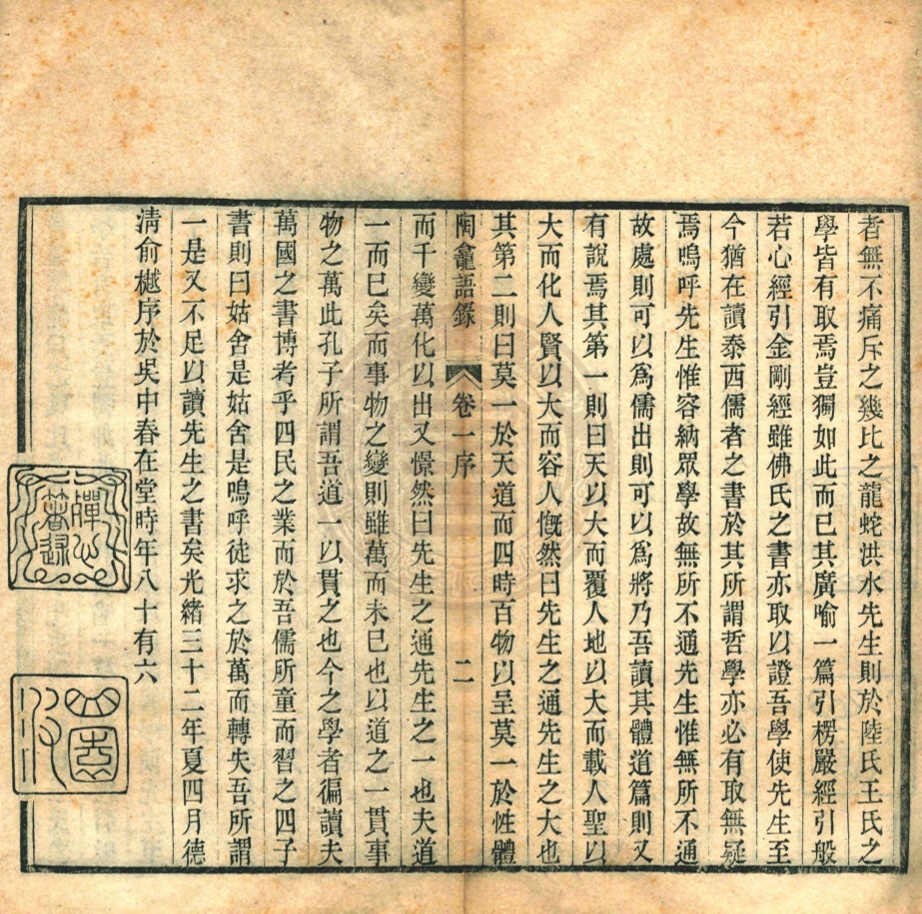 者無不痛斥之幾比之龍蛇洪水先生則於陸氏王氏之
學皆有取焉豈獨如此而已其廣喻一篇引楞嚴經引般
若心經引金剛經雖佛氏之書亦取以證吾學使先生至
今猶在讀泰西儒者之書於其所謂哲學亦必有取無疑
焉嗚呼先生惟容納眾學故無所不通先生惟無所不通
故處則可以為儒出則可以為將乃吾讀其體道篇則又
有說焉其第一則曰天以大而覆人地以大而載人聖以
大而化人賢以大而容人慨然曰先生之通先生之大也
其第二則曰莫一於天道而四時百物以呈莫一於性體
陶龕語錄 卷一序 二
而千變萬化以出又憬然曰先生之通先生之一也夫道
一而已矣而事物之變則雖萬而未已也以道之一貫事
物之萬此孔子所謂吾道一以貫之也今之學者徧讀夫
萬國之書博考乎四民之業而於吾儒所童而習之四子
書則曰姑舍是姑舍是嗚呼徒求之於萬而轉失吾所謂
一是又不足以讀先生之書矣光緒三十二年夏四月德
清俞樾序於吳中春在堂時年八十有六